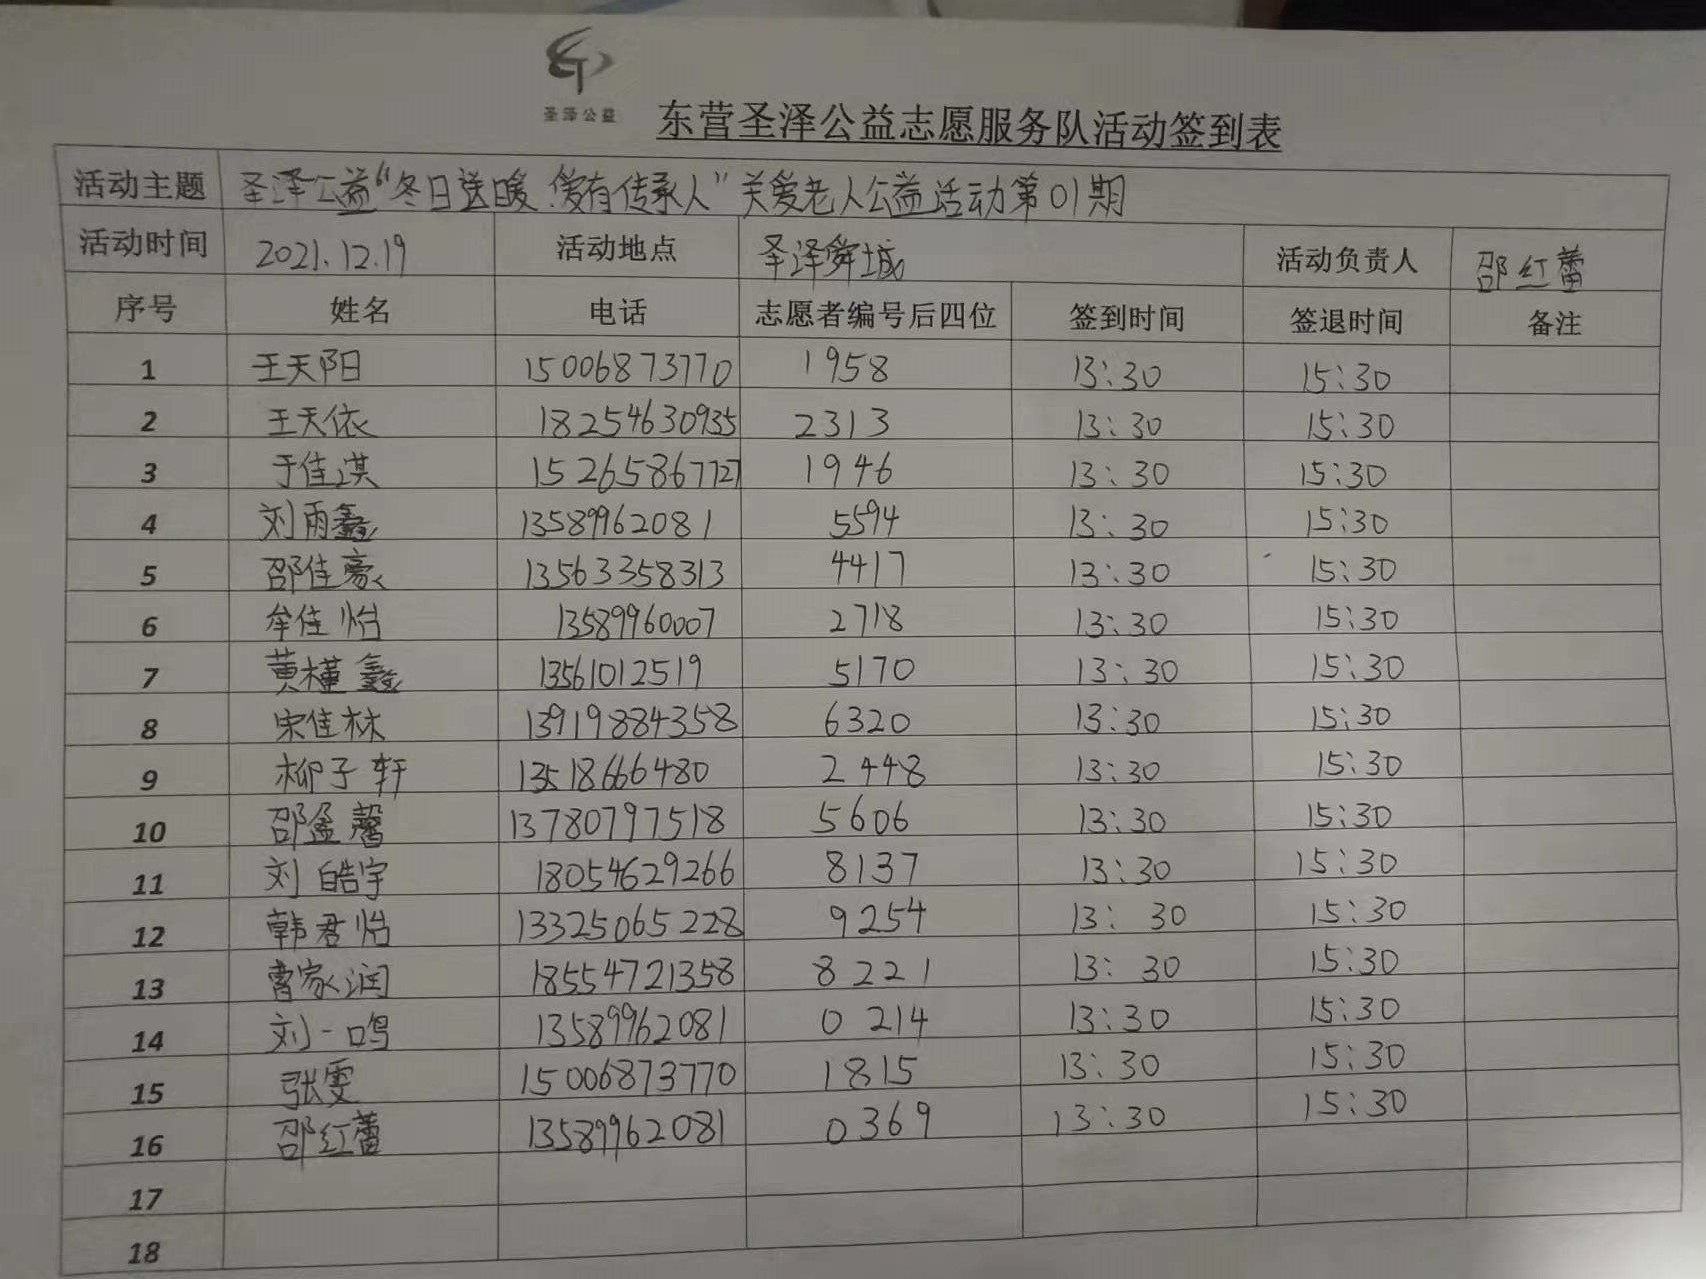 圣泽公益
东营圣泽公益志愿服务队活动签到表
活动主题 圣泽公益“冬日送暖.爱有传承人”关爱老人公益活动第01期
活动时间 2021.12.19 活动地点 圣泽舜城 活动负责人 邵红蕾
序号 姓名 电话 志愿者编号后四位 签到时间 签退时间 备注
1 王天阳 15006873770 1958 13:30 15:30
2 王天依 18254630935 2313 13:30 15:30
3 于佳淇 15265867727 1946 13:30 15:30
4 刘雨鑫 13589962081 5594 13:30 15:30
5 邵佳豪 13563358313 4417 13:30 15:30
6 牟佳怡 13589960007 2718 13:30 15:30
7 黄槿鑫 13561012519 5170 13:30 15:30
8 宋佳林 13919884358 6320 13:30 15:30
9 柳子轩 13518666480 2448 13:30 15:30
10 邵孟馨 13780797518 5606 13:30 15:30
11 刘皓宇 18054629266 8137 13:30 15:30
12 韩君怡 13325065228 9254 13:30 15:30
13 曹家润 18554721358 8221 13:30 15:30
14 刘一鸣 13589962081 0214 13:30 15:30
15 张雯 15006873770 1815 13:30 15:30
16 邵红蕾 13589962081 0369 13:30 15:30
17
18